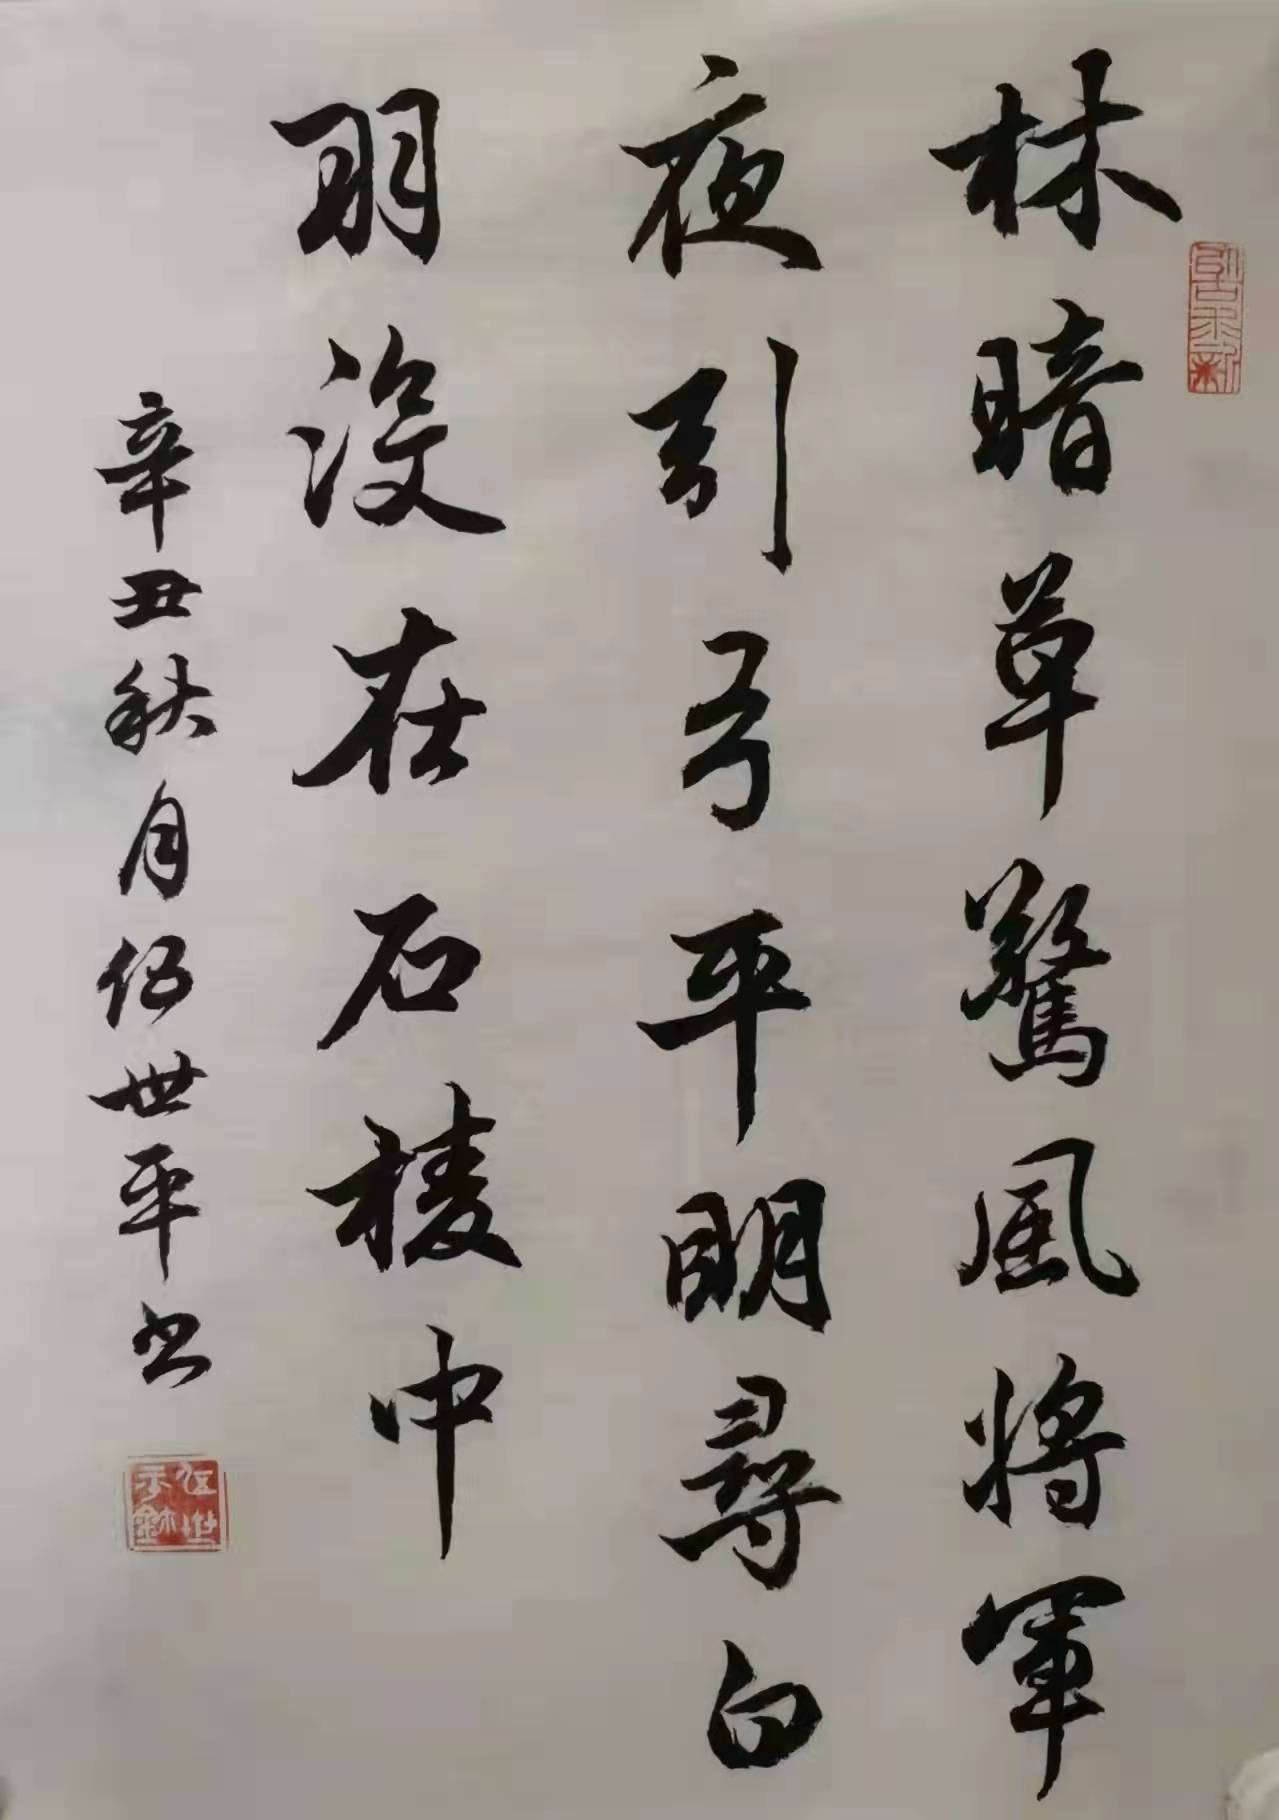 林暗草驚風將軍
夜引弓平明尋白
羽没在石稜中
辛丑秋月伍世平书